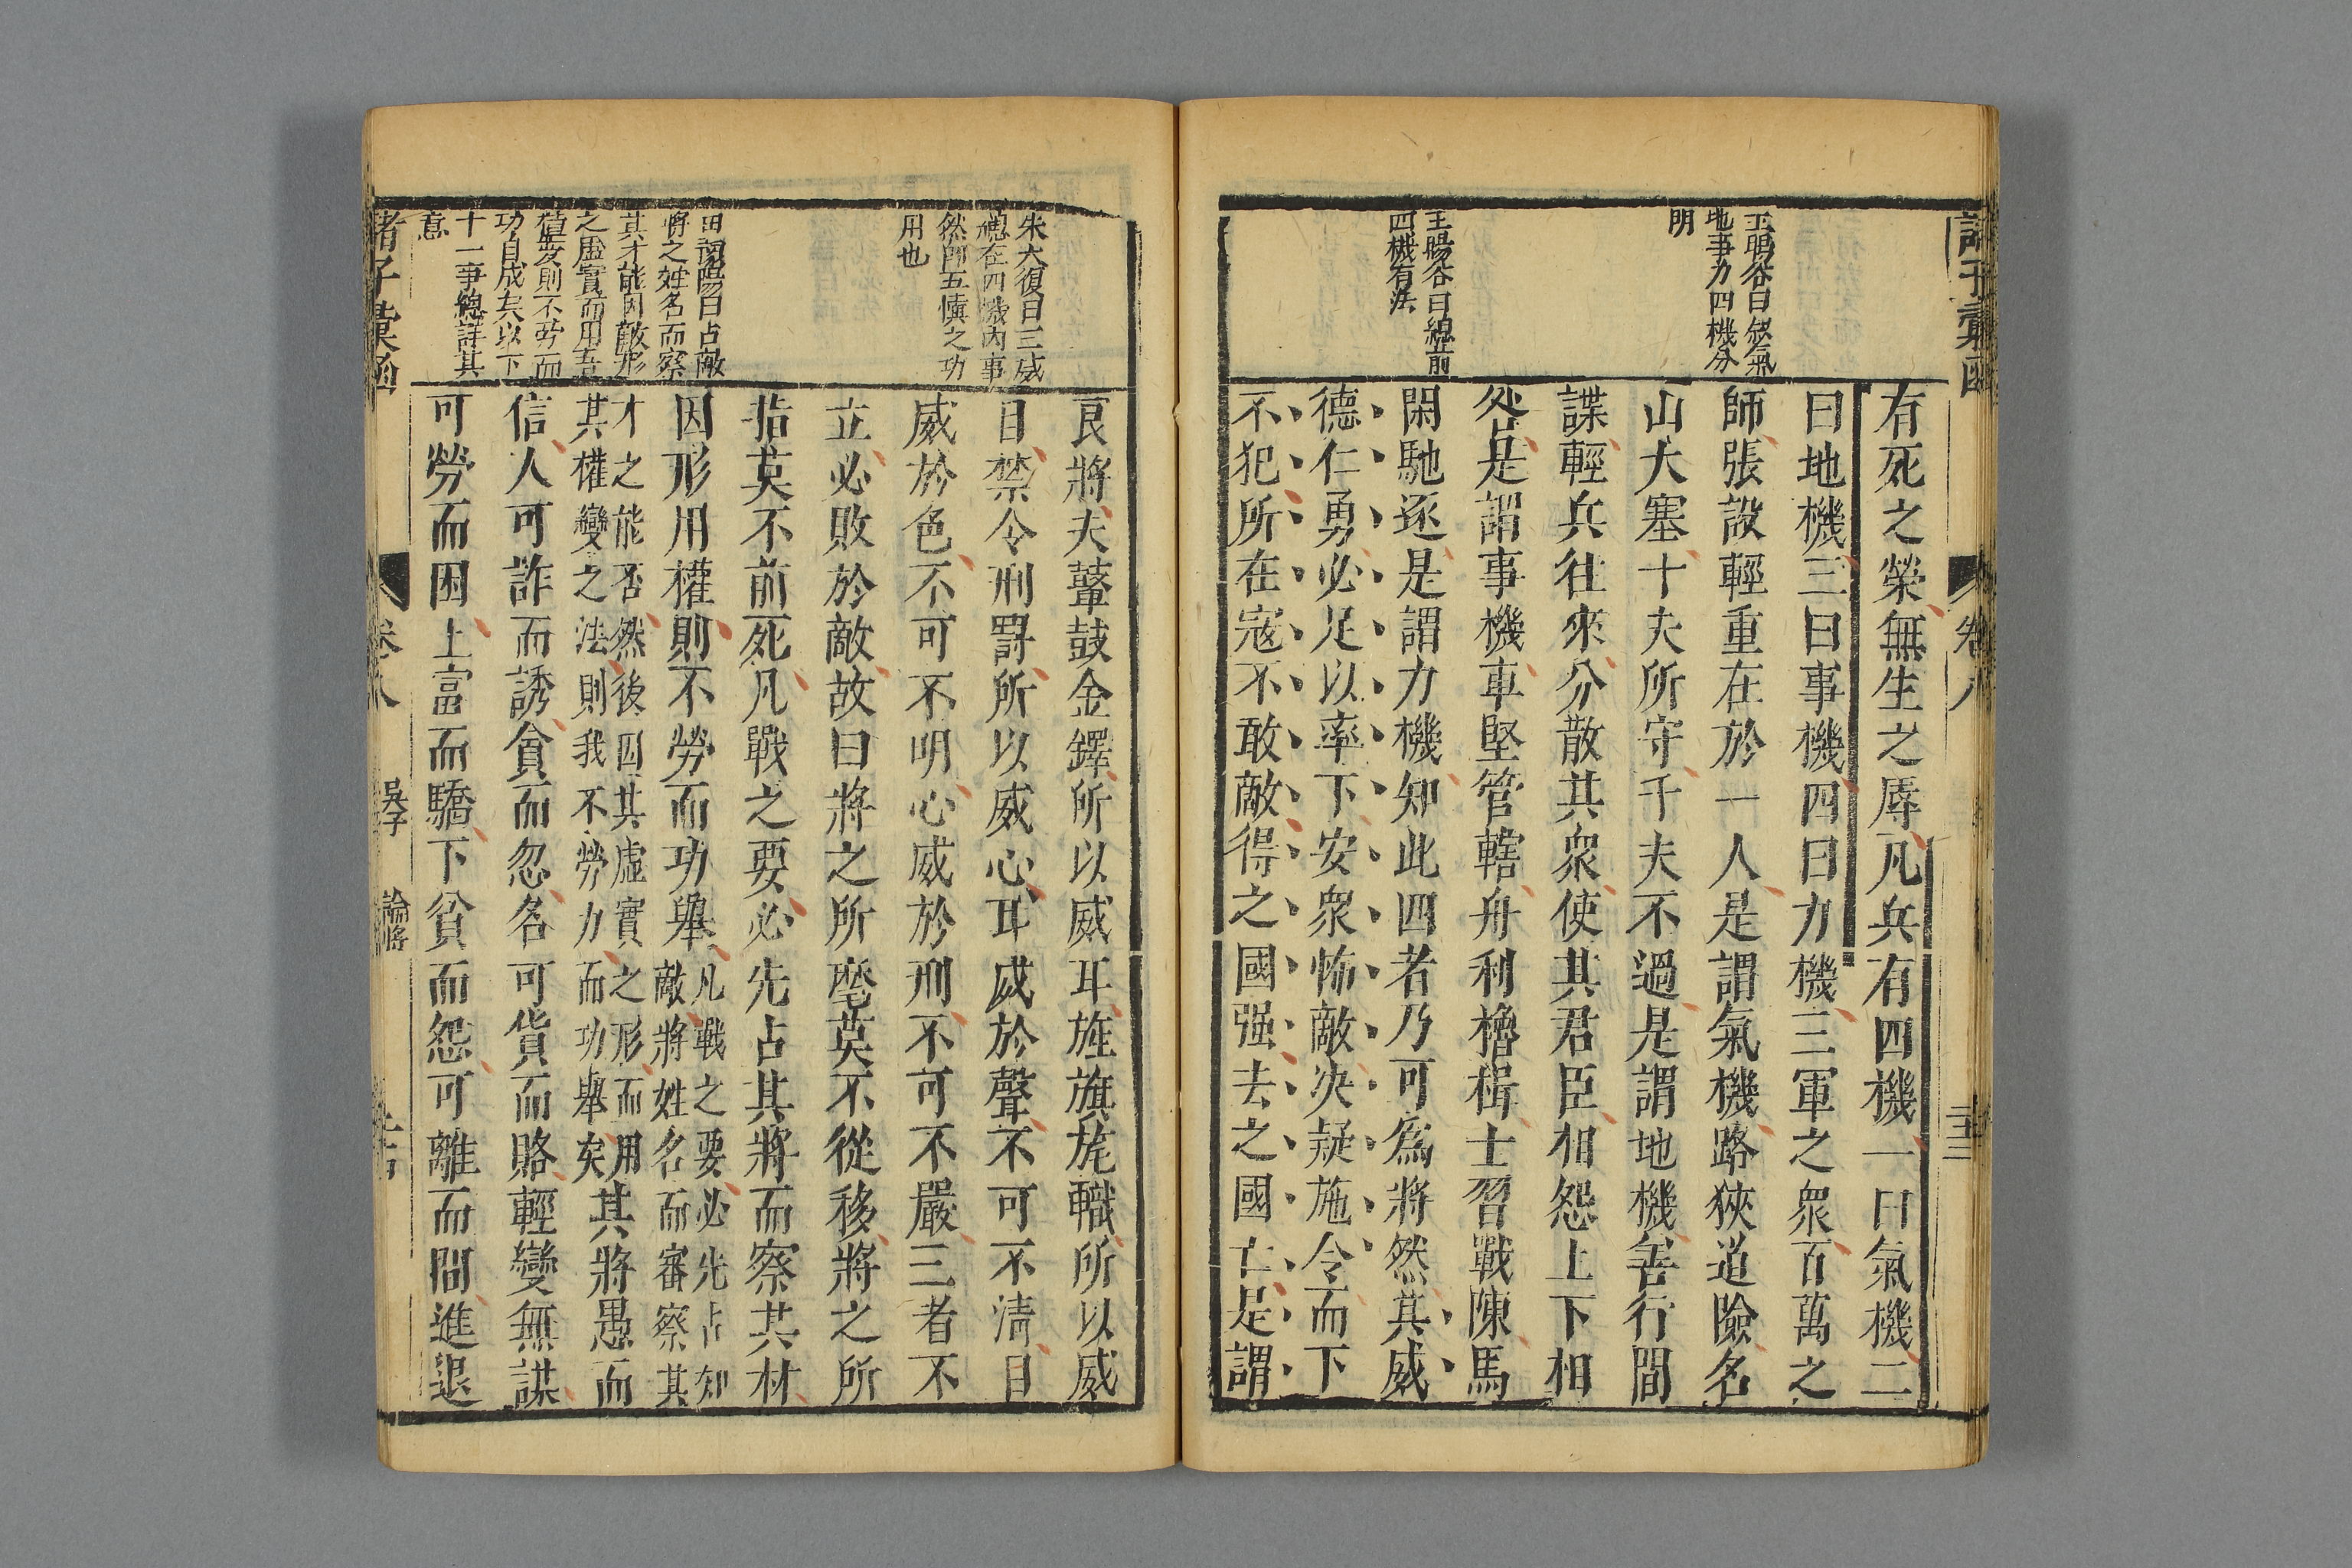 諸子彙函
卷八
王暘谷曰敘氣
地事力四機分
明
王暘谷曰總前
四機有法
有死之榮無生之辱凡兵有四機一曰氣機二
曰地機三曰事機四曰力機三軍之衆百萬之
師張設輕重在於一人是謂氣機路狹道險名
山大塞十夫所守千夫不過是謂地機善行間
諜輕兵往來分散其衆使其君臣相怨上下相
咎是謂事機車堅管轄舟利櫓楫士習戰陳馬
閑馳逐是謂力機知此四者乃可爲將然其威
德仁勇必足以率下安衆怖敵决疑施令而下
不犯所在寇不敢敵得之國强去之國亡是謂
朱大復曰三威
總在四機內事
然卽五慎之功
用也
田豫陽曰占敵
將之姓名而察
其才能因敵形
之虛實而用吾
權變則不勞而
功自成矣以下
十一事總詳其
意
良將夫鼙鼓金鐸所以威耳旌旗旄幟所以威
目禁令刑罰所以威心耳威於聲不可不淸目
威於色不可不明心威於刑不可不嚴三者不
立必敗於敵故曰將之所麾莫不從移將之所
指莫不前死凡戰之要必先占其將而察其材
因形用權則不勞而功舉凡戰之要必先占知
敵將姓名而審察其
才之能否然後因其虛實之形而用
其權變之法則我不勞力而功舉矣其將愚而
信人可詐而誘貪而忽名可貨而賂輕變無謀
可勞而困上富而驕下貧而怨可離而間進退
諸子彙函
卷八
吳子
論將